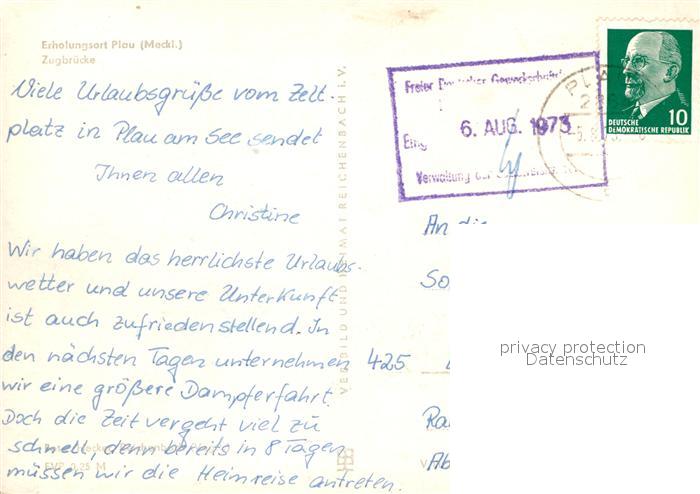 Erholungsort Plau (Meckl.)
Zugbrücke
Viele Urlaubsgrüße vom Zelt-
platz in Plau am See sendet
Ihnen allen
Christine
Wir haben das herrlichste Urlaubs-
wetter und unsere Unterkunft
ist auch zufriedenstellend. In
den nächsten Tagen unternehmen
wir eine größere Dampferfahrt.
Doch die Zeit vergeht viel zu
schnell, denn bereits in 8 Tagen
müssen wir die Heimreise antreten.
EVP 0,25 M
VEB BILD UND HEIMAT REICHENBACH i. V.
Freier Deutscher Gewerkschafts
Eing
6. AUG. 1973
Verwaltung der
PLA
DEUTSCHE
DEMOKRATISCHE REPUBLIK
10
An die
So
425
Ra
Ab
privacy protection
Datenschutz